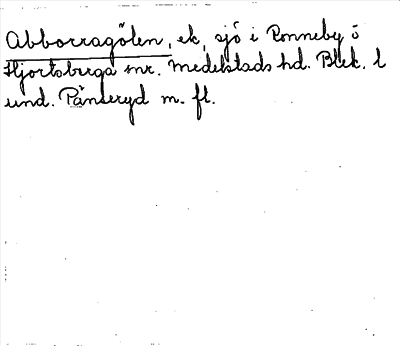 Abborragölen, ek, sjö i Ronneby o
Hjortsberga snr. Medelstads hd. Blek. l
und. Pånseryd m. fl.